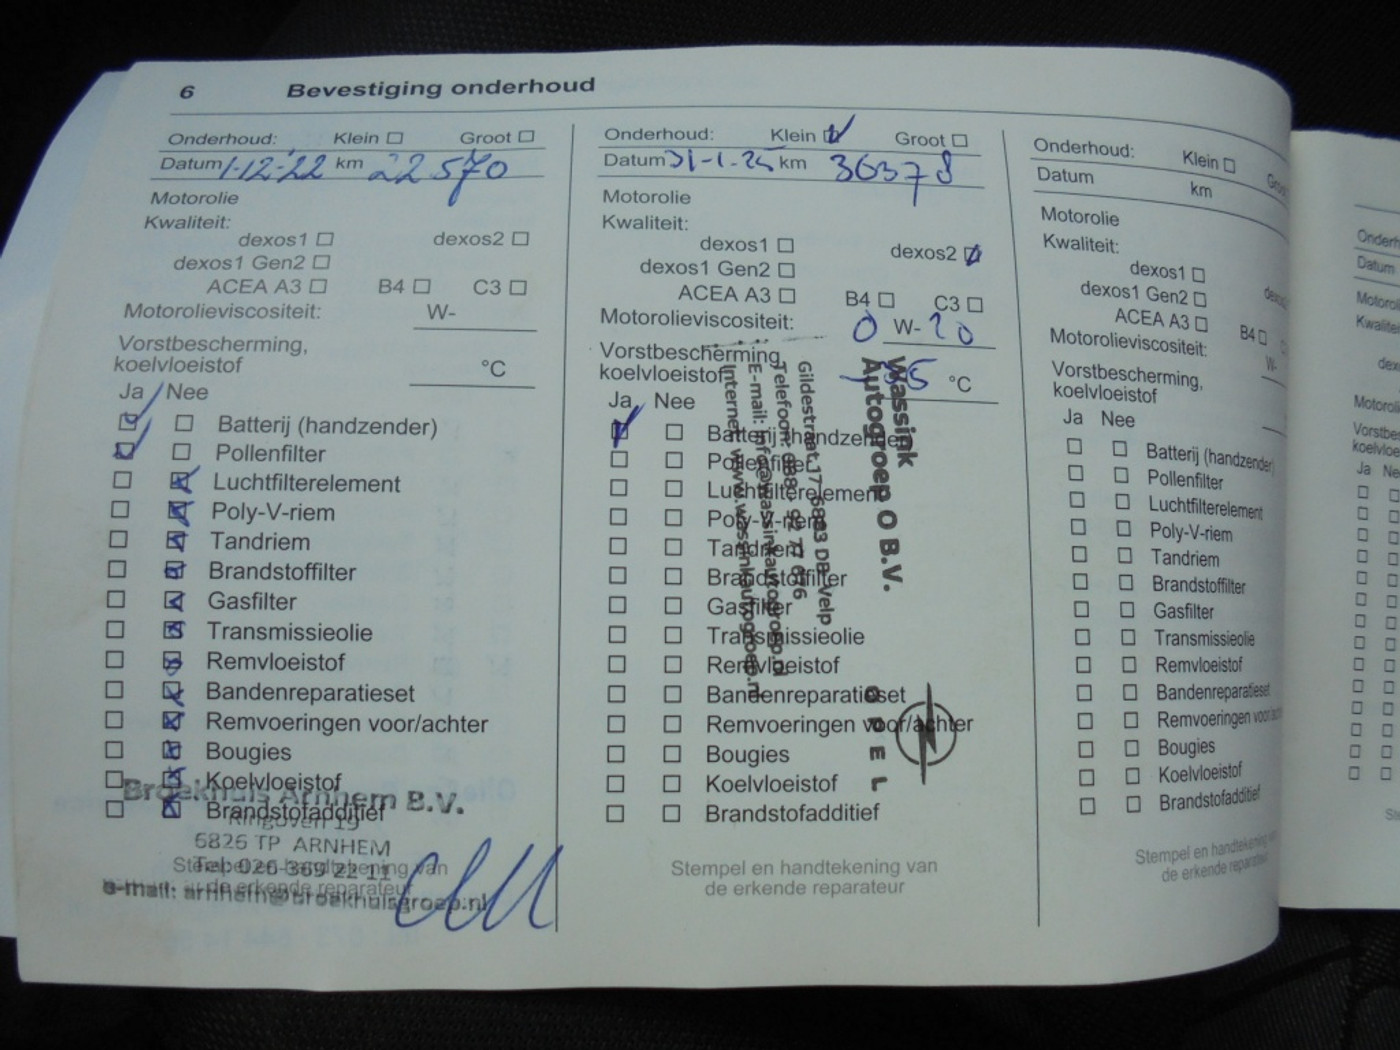 6 Bevestiging onderhoud
Onderhoud: Klein Groot
Datum 1-12-22 km 22570
Motorolie
Kwaliteit:
dexos1 dexos2
dexos1 Gen2
ACEA A3 B4 C3
Motorolieviscositeit: W-
Vorstbescherming,
koelvloeistof °C
Ja Nee
Batterij (handzender)
Pollenfilter
Luchtfilterelement
Poly-V-riem
Tandriem
Brandstoffilter
Gasfilter
Transmissieolie
Remvloeistof
Bandenreparatieset
Remvoeringen voor/achter
Bougies
Koelvloeistof
Brandstofadditief
Broekhuis Arnhem B.V.
Ringoven 19
6826 TP ARNHEM
Tel: 026 369 22 11
e-mail: arnhem@broekhuisgroep.nl
Stempel en handtekening van
de erkende reparateur
Onderhoud: Klein Groot
Datum 31-1-25 km 36378
Motorolie
Kwaliteit:
dexos1 dexos2
dexos1 Gen2
ACEA A3 B4 C3
Motorolieviscositeit: 0 W- 20
Vorstbescherming,
koelvloeistof -35 °C
Ja Nee
Batterij (handzender)
Pollenfilter
Luchtfilterelement
Poly-V-riem
Tandriem
Brandstoffilter
Gasfilter
Transmissieolie
Remvloeistof
Bandenreparatieset
Remvoeringen voor/achter
Bougies
Koelvloeistof
Brandstofadditief
Wassink
Autogroep O B.V.
Gildestraat 17 6883 DB Velp
E-mail: info@wassinkautogroep.nl
Internet: www.wassinkautogroep.nl
OPEL
Stempel en handtekening van
de erkende reparateur
Onderhoud: Klein
Datum km
Motorolie
Kwaliteit:
dexos1
dexos1 Gen2
ACEA A3 B4
Motorolieviscositeit: W-
Vorstbescherming,
koelvloeistof
Ja Nee
Batterij (handzender)
Pollenfilter
Luchtfilterelement
Poly-V-riem
Tandriem
Brandstoffilter
Gasfilter
Transmissieolie
Remvloeistof
Bandenreparatieset
Remvoeringen voor/
Bougies
Koelvloeistof
Brandstofadditief
Stempel en handtekening
de erkende reparateur
Datum
Ja